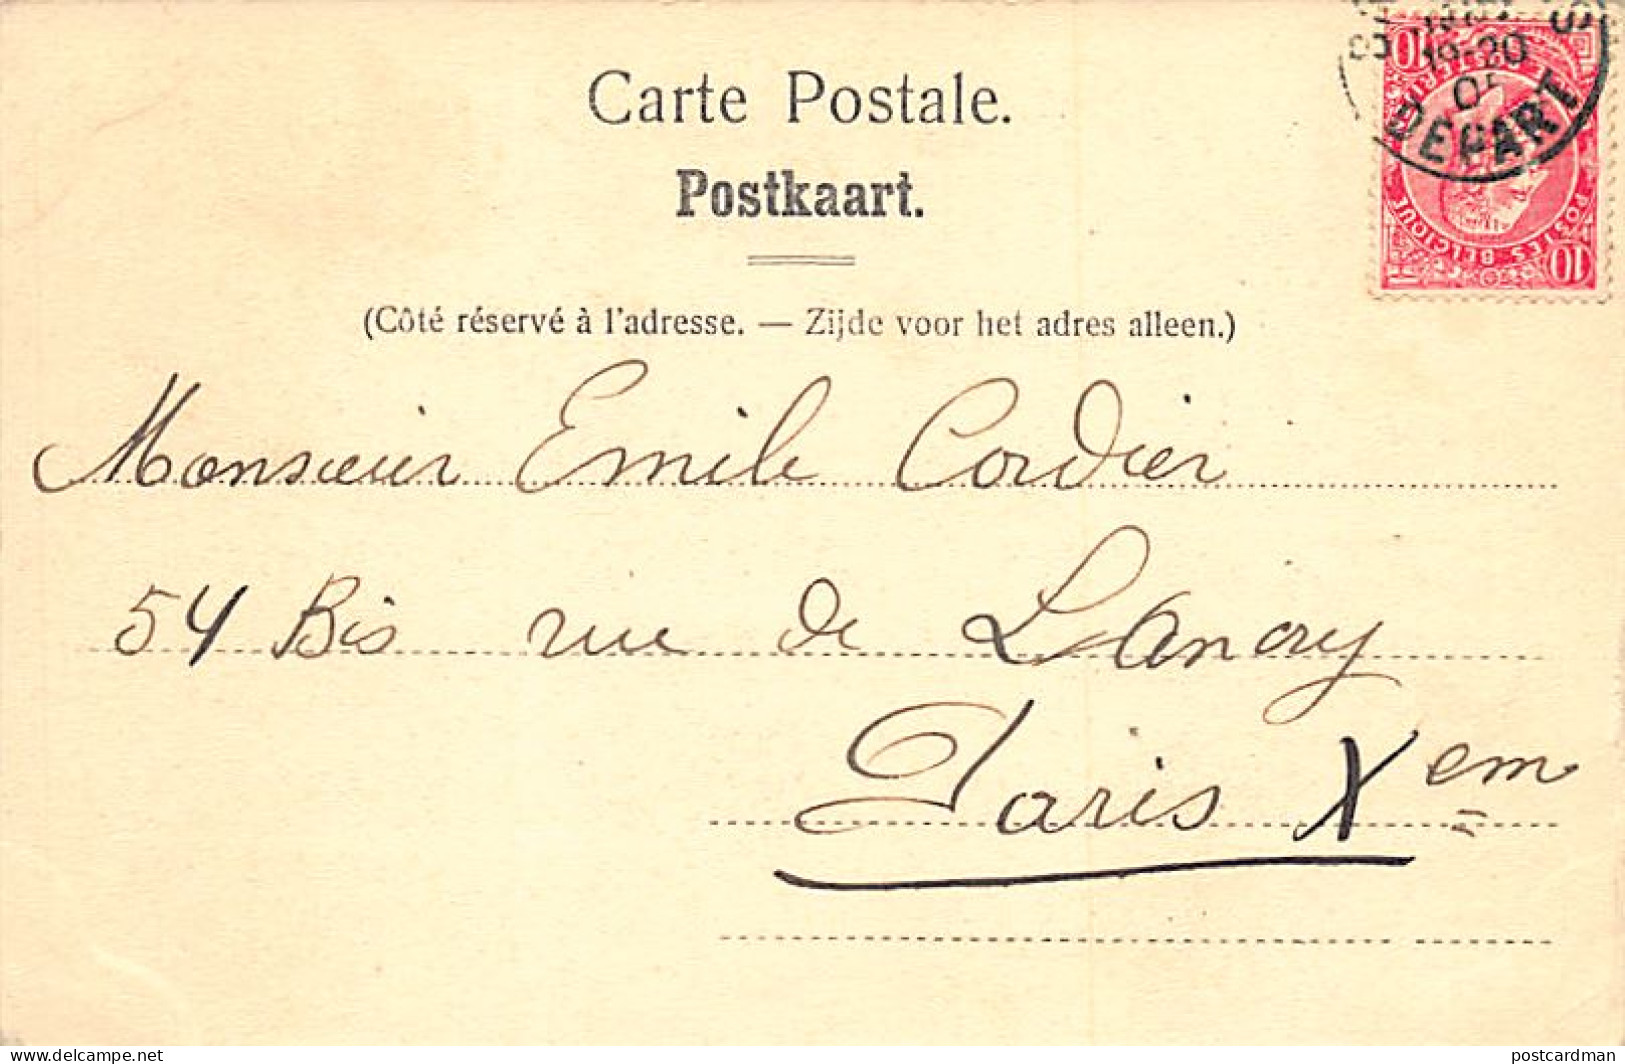 Carte Postale.
Postkaart.
(Côté réservé à l'adresse. — Zijde voor het adres alleen.)
Monsieur Emile Cordier
54 Bis rue de Lancry
Paris Xem
10 10
POSTES BELGIQUE
19-20
DEPART
delcampe.net
postcardman